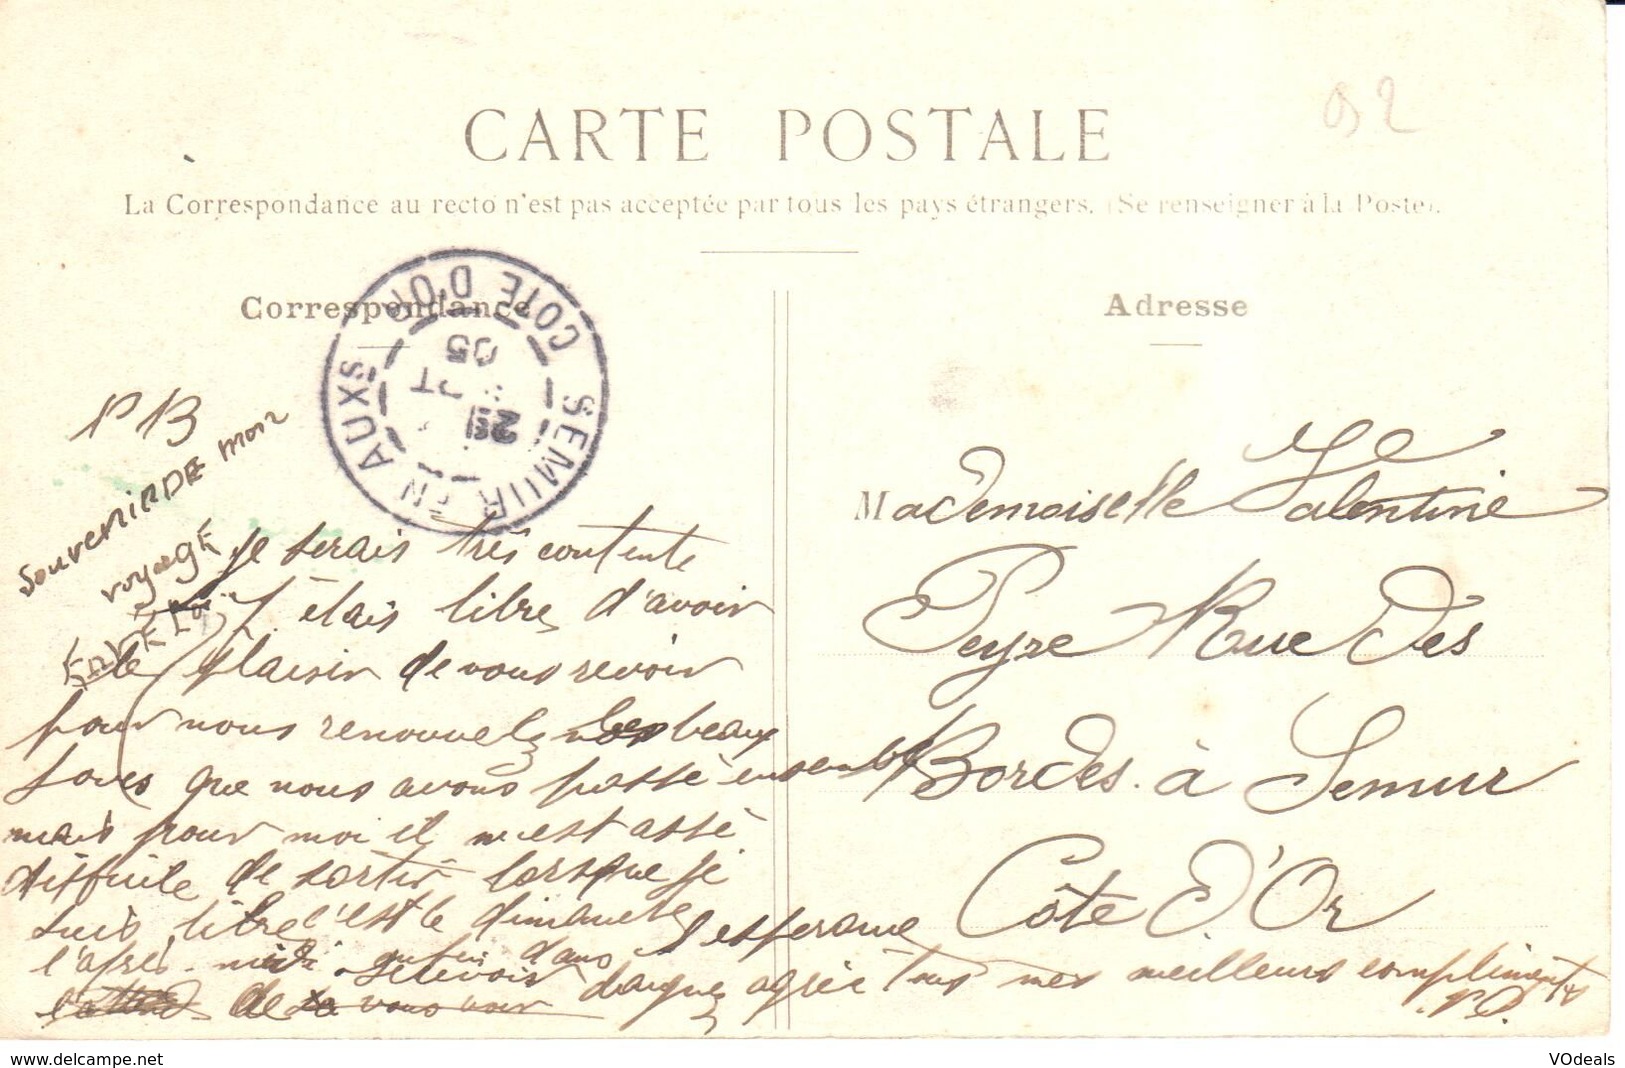 92
CARTE POSTALE
La Correspondance au recto n'est pas acceptée par tous les pays étrangers. (Se renseigner à la Poste).
Correspondance
Adresse
SEMUR EN AUXS
COTE D'OR
29
PT
05
souvenir DE mon
voyage
je serais très contente
j'étais libre d'avoir
le plaisir de vous revoir
pour nous renouvelez beaux
jours que nous avons passé ensemble
mais pour moi il m'est assé
difficile de sortir lorsque je
suis libre c'est le dimanche
l'après midi dans l'esperance
de vous voir daignez agréé tous mes meilleurs compliments
Mademoiselle Valentine
Peyre Rue des
Bordes. à Semur
Côte d'Or
VOdeals
www.delcampe.net